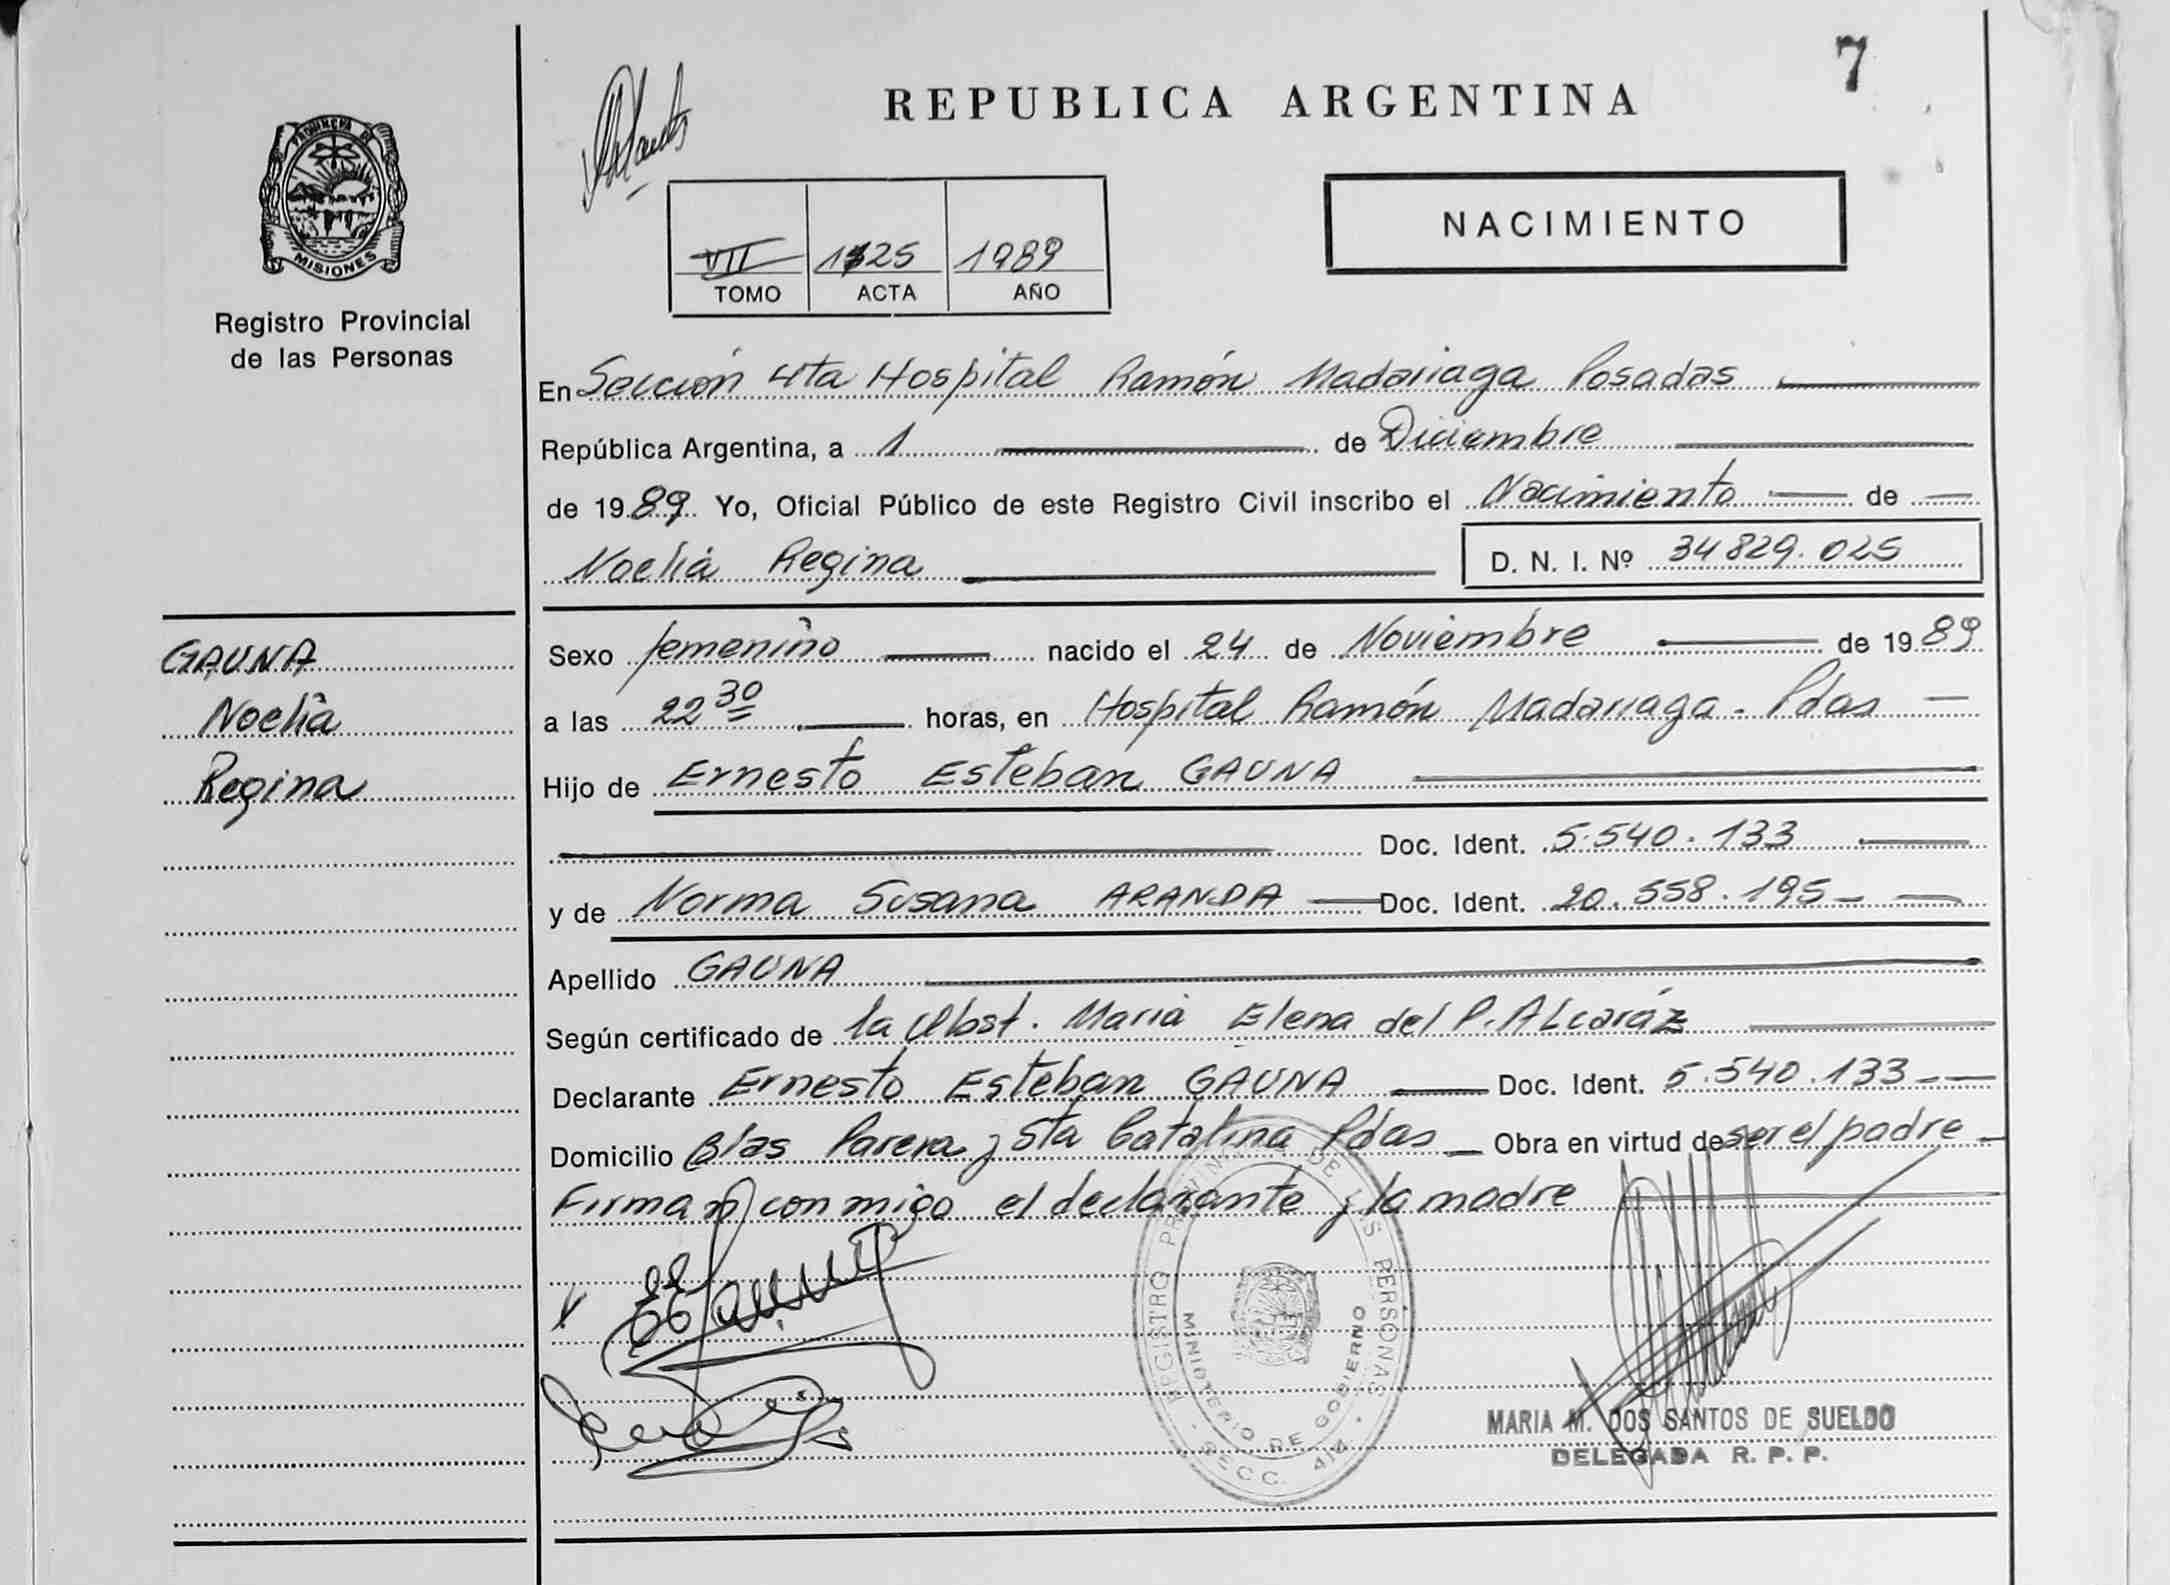 7
REPUBLICA ARGENTINA
NACIMIENTO
PROVINCIA DE
MISIONES
Registro Provincial
de las Personas
VII 1125 1989
TOMO ACTA AÑO
En Sección 4ta Hospital Ramón Madariaga Posadas
República Argentina, a 1 de Diciembre
de 1989 Yo, Oficial Público de este Registro Civil inscribo el Nacimiento de
Noelia Regina D. N. I. Nº 34829.025
GAUNA
Noelia
Regina
Sexo femenino nacido el 24 de Noviembre de 1989
a las 22 30 horas, en Hospital Ramón Madariaga - Pdas
Hijo de Ernesto Esteban GAUNA
Doc. Ident. 5.540.133
y de Norma Susana ARANDA Doc. Ident. 20.558.195
Apellido GAUNA
Según certificado de la Obst. Maria Elena del P. ALcaráz
Declarante Ernesto Esteban GAUNA Doc. Ident. 5.540.133
Domicilio Blas Parera y Sta Catalina Pdas Obra en virtud de ser el padre
Firman conmigo el declarante y la madre
REGISTRO PROVINCIAL DE LAS PERSONAS
MINISTERIO DE GOBIERNO
SECC. 4ta.
MARIA M. DOS SANTOS DE SUELDO
DELEGADA R. P. P.